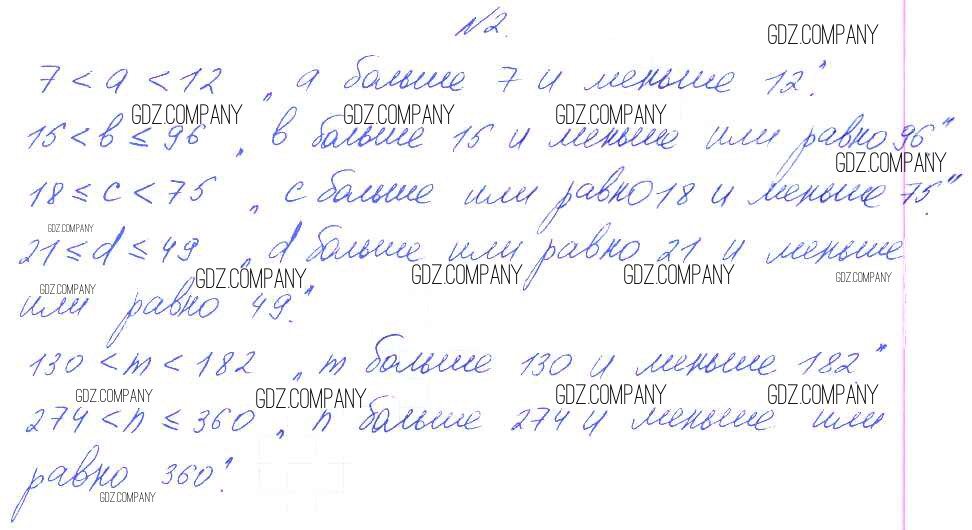 №2.
GDZ.COMPANY
7 < a < 12 „a больше 7 и меньше 12".
GDZ.COMPANY GDZ.COMPANY GDZ.COMPANY
15 < b ≤ 96 „b больше 15 и меньше или равно 96"
GDZ.COMPANY
18 ≤ c < 75 „c больше или равно 18 и меньше 75".
GDZ.COMPANY
21 ≤ d ≤ 49 „d больше или равно 21 и меньше
GDZ.COMPANY GDZ.COMPANY GDZ.COMPANY GDZ.COMPANY GDZ.COMPANY
или равно 49".
130 < m < 182 „m больше 130 и меньше 182"
GDZ.COMPANY GDZ.COMPANY GDZ.COMPANY GDZ.COMPANY
274 < n ≤ 360 „n больше 274 и меньше или
равно 360".
GDZ.COMPANY